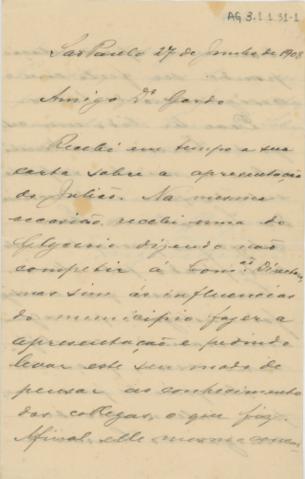 AG 3.1.1.31-1
São Paulo 27 de Junho de 1903
Amigo Dr. Gordo
Recebi em tempo a sua
carta sobre a apresentação
do Julião. Na mesma
occasião, recebi uma do
Glycerio dizendo não
competir á Comm.ão Directora,
mas sim ás influencias
do municipio fazer a
apresentação e pedindo
levar este seu modo de
pensar ao conhecimento
dos collegas, o que fiz.
Afinal, elle mesmo